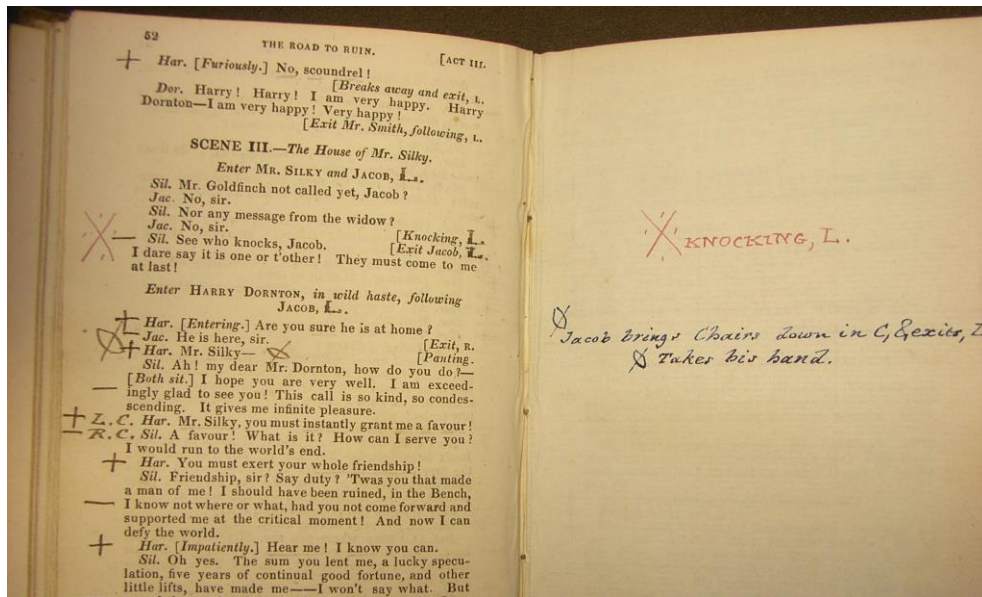 52
THE ROAD TO RUIN.
[ACT III.
+ Har. [Furiously.] No, scoundrel!
[Breaks away and exit, L.
Dor. Harry! Harry! I am very happy. Harry
Dornton—I am very happy! Very happy!
[Exit Mr. Smith, following, L.
SCENE III.—The House of Mr. Silky.
Enter MR. SILKY and JACOB, L.
Sil. Mr. Goldfinch not called yet, Jacob?
Jac. No, sir.
Sil. Nor any message from the widow?
Jac. No, sir. [Knocking, L.
— Sil. See who knocks, Jacob. [Exit Jacob, L.
I dare say it is one or t'other! They must come to me
at last!
Enter HARRY DORNTON, in wild haste, following
JACOB, L.
+ Har. [Entering.] Are you sure he is at home?
Jac. He is here, sir. [Exit, R.
+ Har. Mr. Silky— [Panting.
Sil. Ah! my dear Mr. Dornton, how do you do?—
[Both sit.] I hope you are very well. I am exceed-
— ingly glad to see you! This call is so kind, so condes-
scending. It gives me infinite pleasure.
+ L. C. Har. Mr. Silky, you must instantly grant me a favour!
— R. C. Sil. A favour! What is it? How can I serve you?
I would run to the world's end.
+ Har. You must exert your whole friendship!
Sil. Friendship, sir? Say duty? 'Twas you that made
a man of me! I should have been ruined, in the Bench,
— I know not where or what, had you not come forward and
supported me at the critical moment! And now I can
defy the world.
+ Har. [Impatiently.] Hear me! I know you can.
Sil. Oh yes. The sum you lent me, a lucky specu-
lation, five years of continual good fortune, and other
little lifts, have made me——I won't say what. But
KNOCKING, L.
Jacob brings Chairs down in C, & exits, L
Takes his hand.